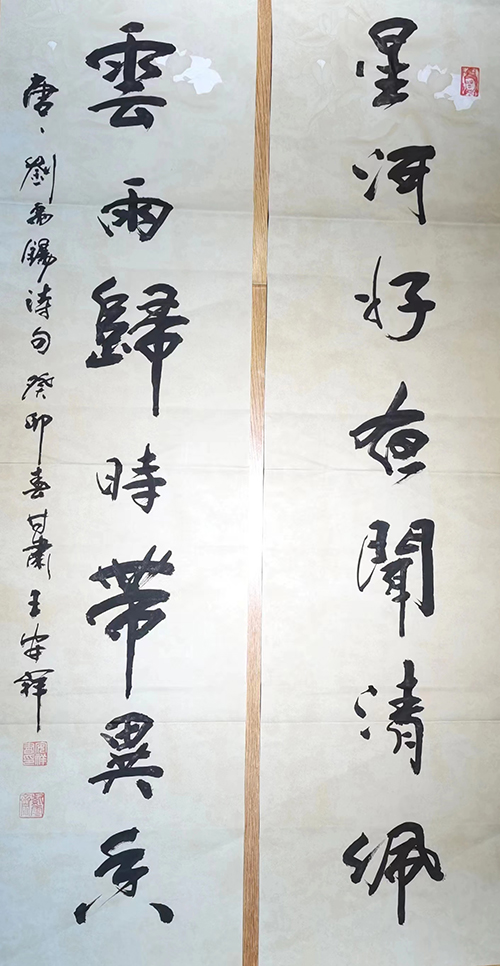 星河好夜聞清佩
雲雨歸時帶異香
唐、劉禹錫詩句癸卯春甘肅王安祥